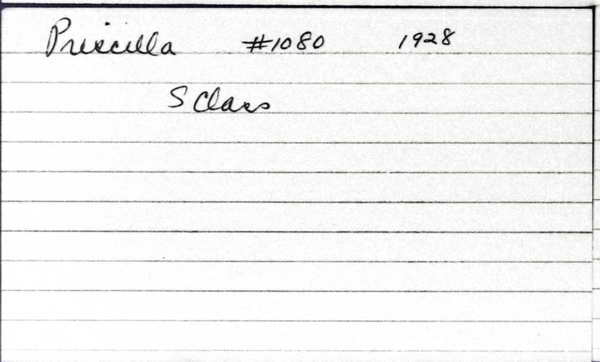 Priscilla #1080 1928
S Class